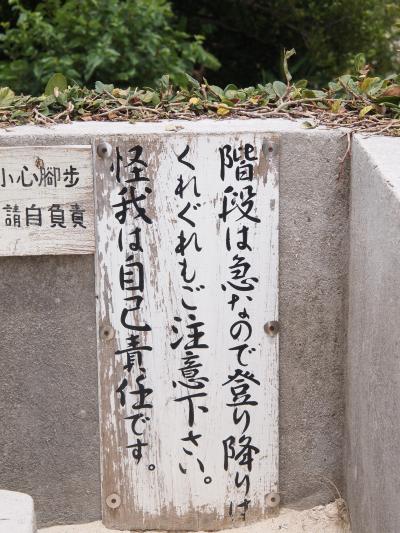 階段は急なので登り降りは
くれぐれもご注意下さい。
怪我は自己責任です。
小心腳步
請自負責